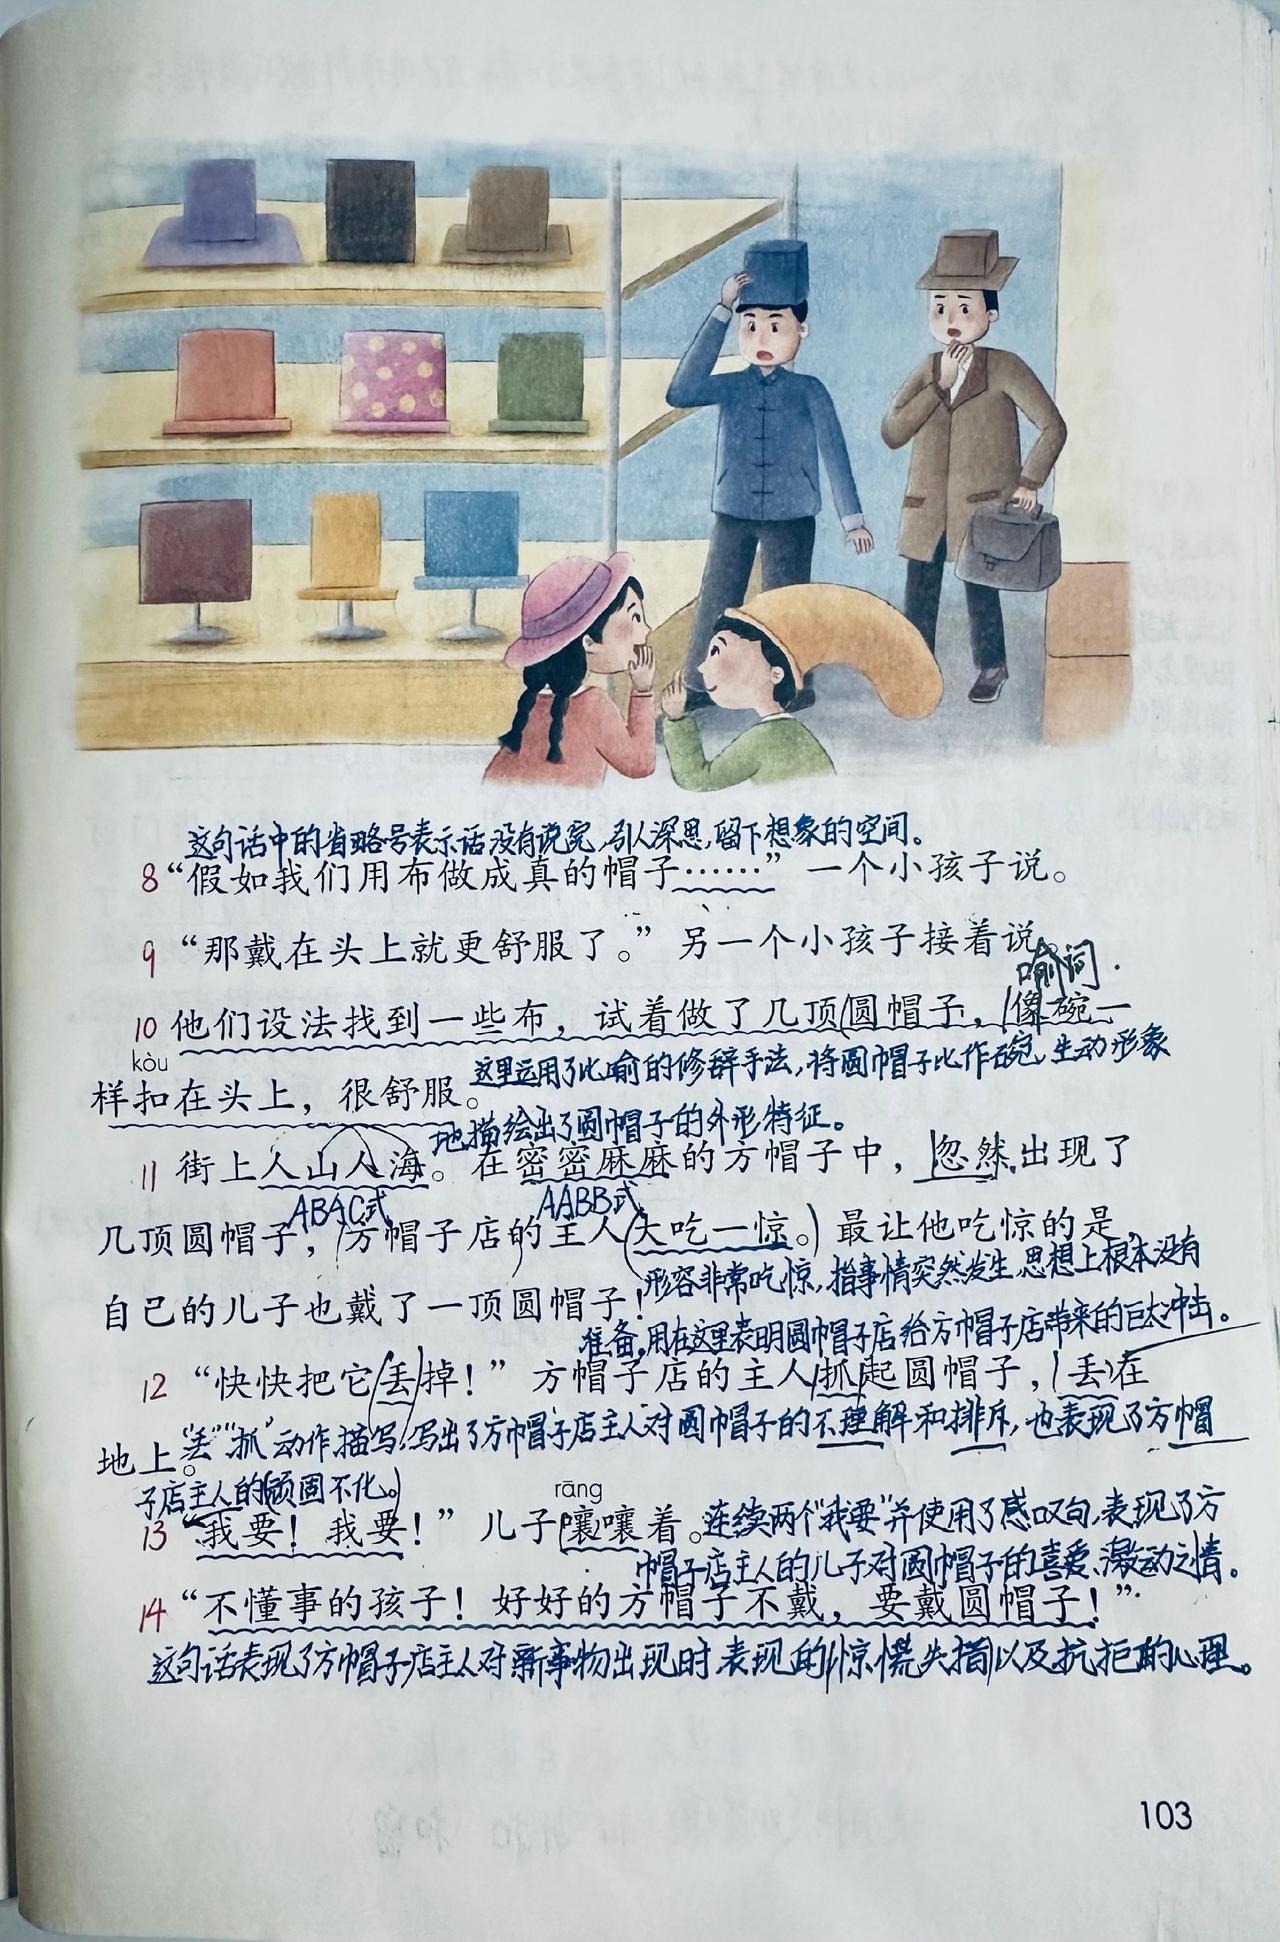 这句话中的省略号表示话没有说完,引人深思,留下想象的空间。
8“假如我们用布做成真的帽子……”一个小孩子说。
9“那戴在头上就更舒服了。”另一个小孩子接着说。
喻词
10他们设法找到一些布，试着做了几顶圆帽子，像碗一
kòu
这里运用了比喻的修辞手法,将圆帽子比作碗,生动形象
样扣在头上，很舒服。
地描绘出了圆帽子的外形特征。
11街上人山人海。在密密麻麻的方帽子中，忽然出现了
ABAC式 AABB式
几顶圆帽子，方帽子店的主人大吃一惊。最让他吃惊的是，
形容非常吃惊,指事情突然发生,思想上根本没有
自己的儿子也戴了一顶圆帽子！
准备,用在这里表明圆帽子店给方帽子店带来的巨大冲击。
12“快快把它丢掉！”方帽子店的主人抓起圆帽子，丢在
“丢”“抓”动作描写,写出了方帽子店主人对圆帽子的不理解和排斥,也表现了方帽
地上。
子店主人的顽固不化。
rāng
13“我要！我要！”儿子嚷嚷着。
连续两个“我要”并使用了感叹句,表现了方
帽子店主人的儿子对圆帽子的喜爱、激动之情。
14“不懂事的孩子！好好的方帽子不戴，要戴圆帽子！”
这句话表现了方帽子店主人对新事物出现时,表现的惊慌失措以及抗拒的心理。
103